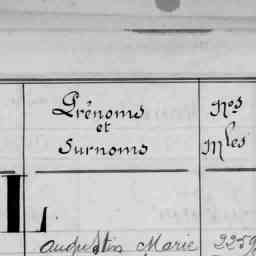 Prénoms Nos
et
Surnoms Mles
L
Augustin Marie 2259